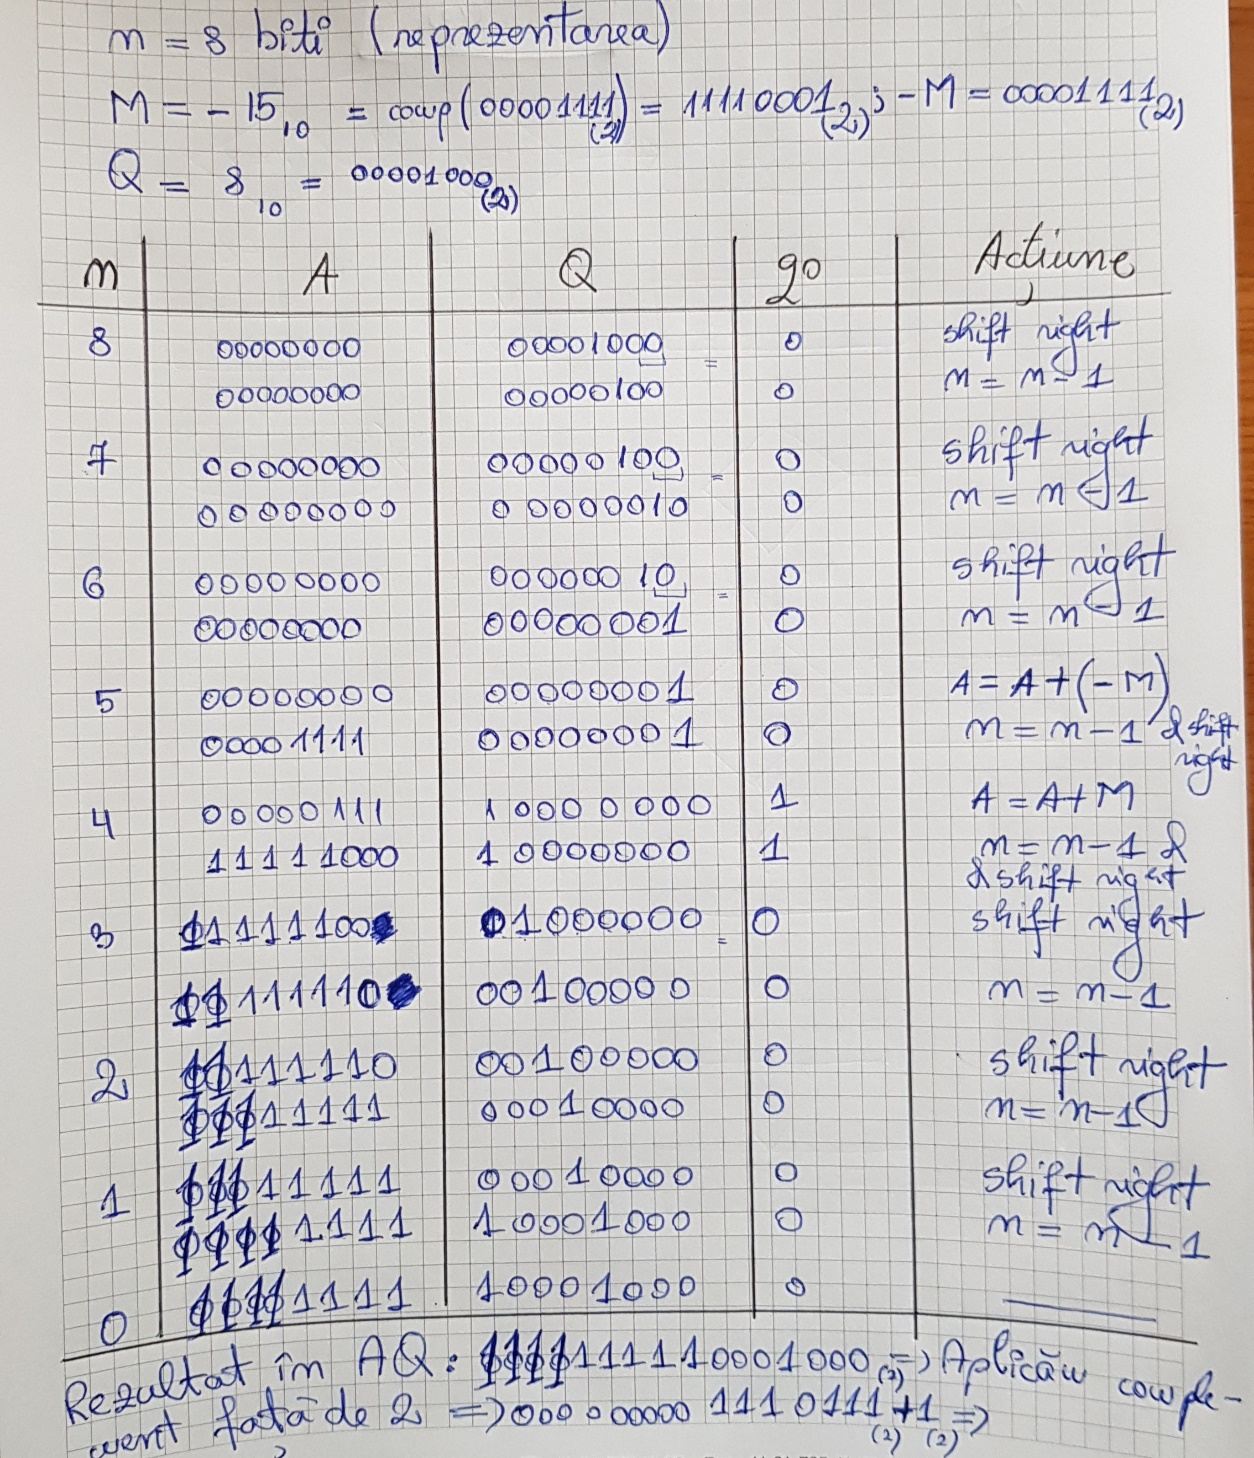 n = 8 biți (reprezentarea)
M = - 15₁₀ = comp(00001111₍₂₎) = 11110001₍₂₎; -M = 00001111₍₂₎
Q = 8₁₀ = 00001000₍₂₎
n A Q q0 Acțiune
8 00000000 00001000 0 shift right
00000000 00000100 0 n = n - 1
7 00000000 00000100 0 shift right
00000000 00000010 0 n = n - 1
6 00000000 00000010 0 shift right
00000000 00000001 0 n = n - 1
5 00000000 00000001 0 A = A + (-M)
00001111 00000001 0 n = n - 1 & shift
right
4 00000111 10000000 1 A = A + M
11111000 10000000 1 n = n - 1 &
& shift right
3 11111100 01000000 0 shift right
11111110 00100000 0 n = n - 1
2 11111110 00100000 0 shift right
11111111 00010000 0 n = n - 1
1 11111111 00010000 0 shift right
11111111 10001000 0 n = n - 1
0 11111111 10001000 0
Rezultat în AQ: 1111111110001000₍₂₎ => Aplicăm comple-
ment față de 2 => 0000000001110111₍₂₎ + 1₍₂₎ =>